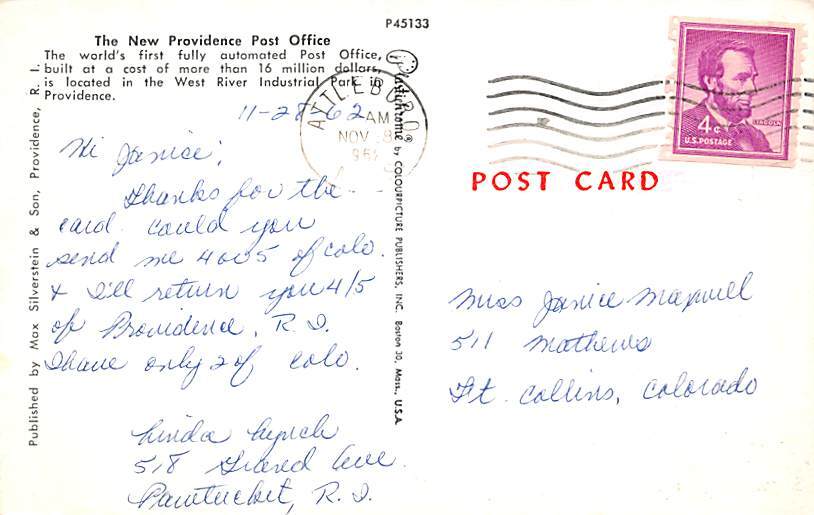 P45133
The New Providence Post Office
The world's first fully automated Post Office,
built at a cost of more than 16 million dollars,
is located in the West River Industrial Park in
Providence.
Published by Max Silverstein & Son, Providence, R. I.
Plastichrome ® by COLOURPICTURE PUBLISHERS, INC. Boston 30, Mass., U.S.A.
ATTLEBORO
AM
NOV 8
196
LINCOLN
4¢
U.S. POSTAGE
POST CARD
11-28-62
Hi Janice,
Thanks for the
card. Could you
send me 4 or 5 of Colo.
& I'll return you 4/5
of Providence, R.I.
I have only 2 of Colo.
Linda Lynch
518 Grand Ave.
Pawtucket, R.I.
Miss Janice Maxwell
511 Mathews
Ft. Collins, Colorado